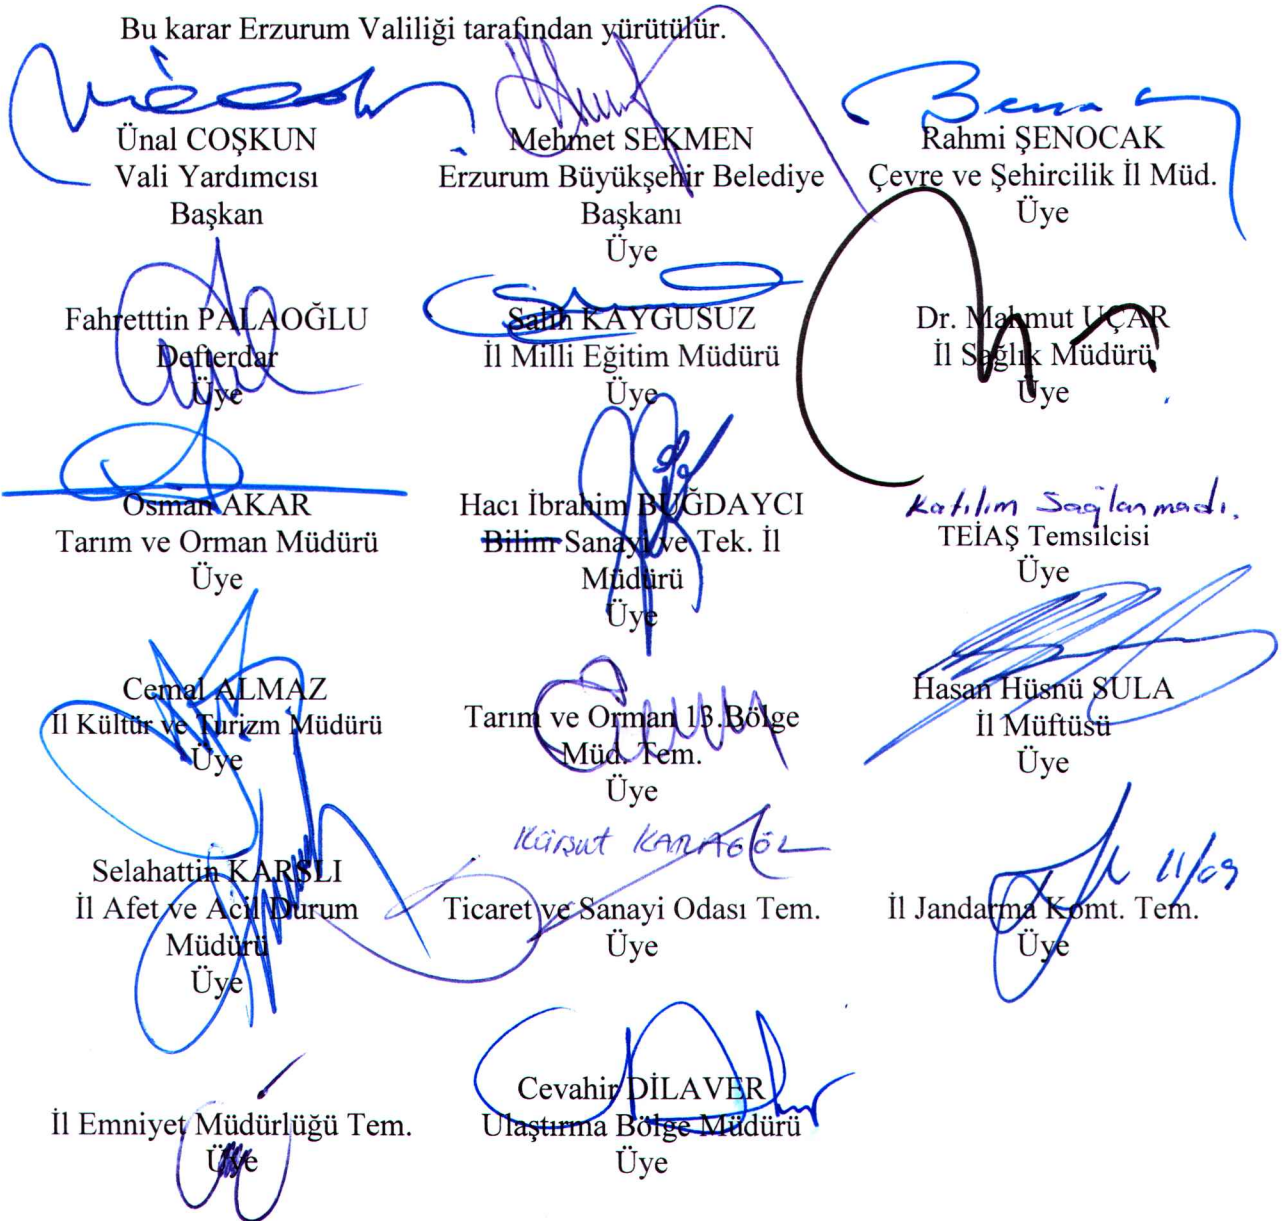 Bu karar Erzurum Valiliği tarafından yürütülür.
Ünal COŞKUN
Vali Yardımcısı
Başkan
Mehmet SEKMEN
Erzurum Büyükşehir Belediye
Başkanı
Üye
Rahmi ŞENOCAK
Çevre ve Şehircilik İl Müd.
Üye
Fahretttin PALAOĞLU
Defterdar
Üye
Salih KAYGUSUZ
İl Milli Eğitim Müdürü
Üye
Dr. Mahmut UÇAR
İl Sağlık Müdürü
Üye
Osman AKAR
Tarım ve Orman Müdürü
Üye
Hacı İbrahim BUĞDAYCI
Bilim Sanayi ve Tek. İl
Müdürü
Üye
Katılım Sağlanmadı.
TEİAŞ Temsilcisi
Üye
Cemal ALMAZ
İl Kültür ve Turizm Müdürü
Üye
Tarım ve Orman 13.Bölge
Müd. Tem.
Üye
Hasan Hüsnü SULA
İl Müftüsü
Üye
Selahattin KARSLI
İl Afet ve Acil Durum
Müdürü
Üye
Kürşut KARAGÖZ
Ticaret ve Sanayi Odası Tem.
Üye
11/09
İl Jandarma Komt. Tem.
Üye
İl Emniyet Müdürlüğü Tem.
Üye
Cevahir DİLAVER
Ulaştırma Bölge Müdürü
Üye